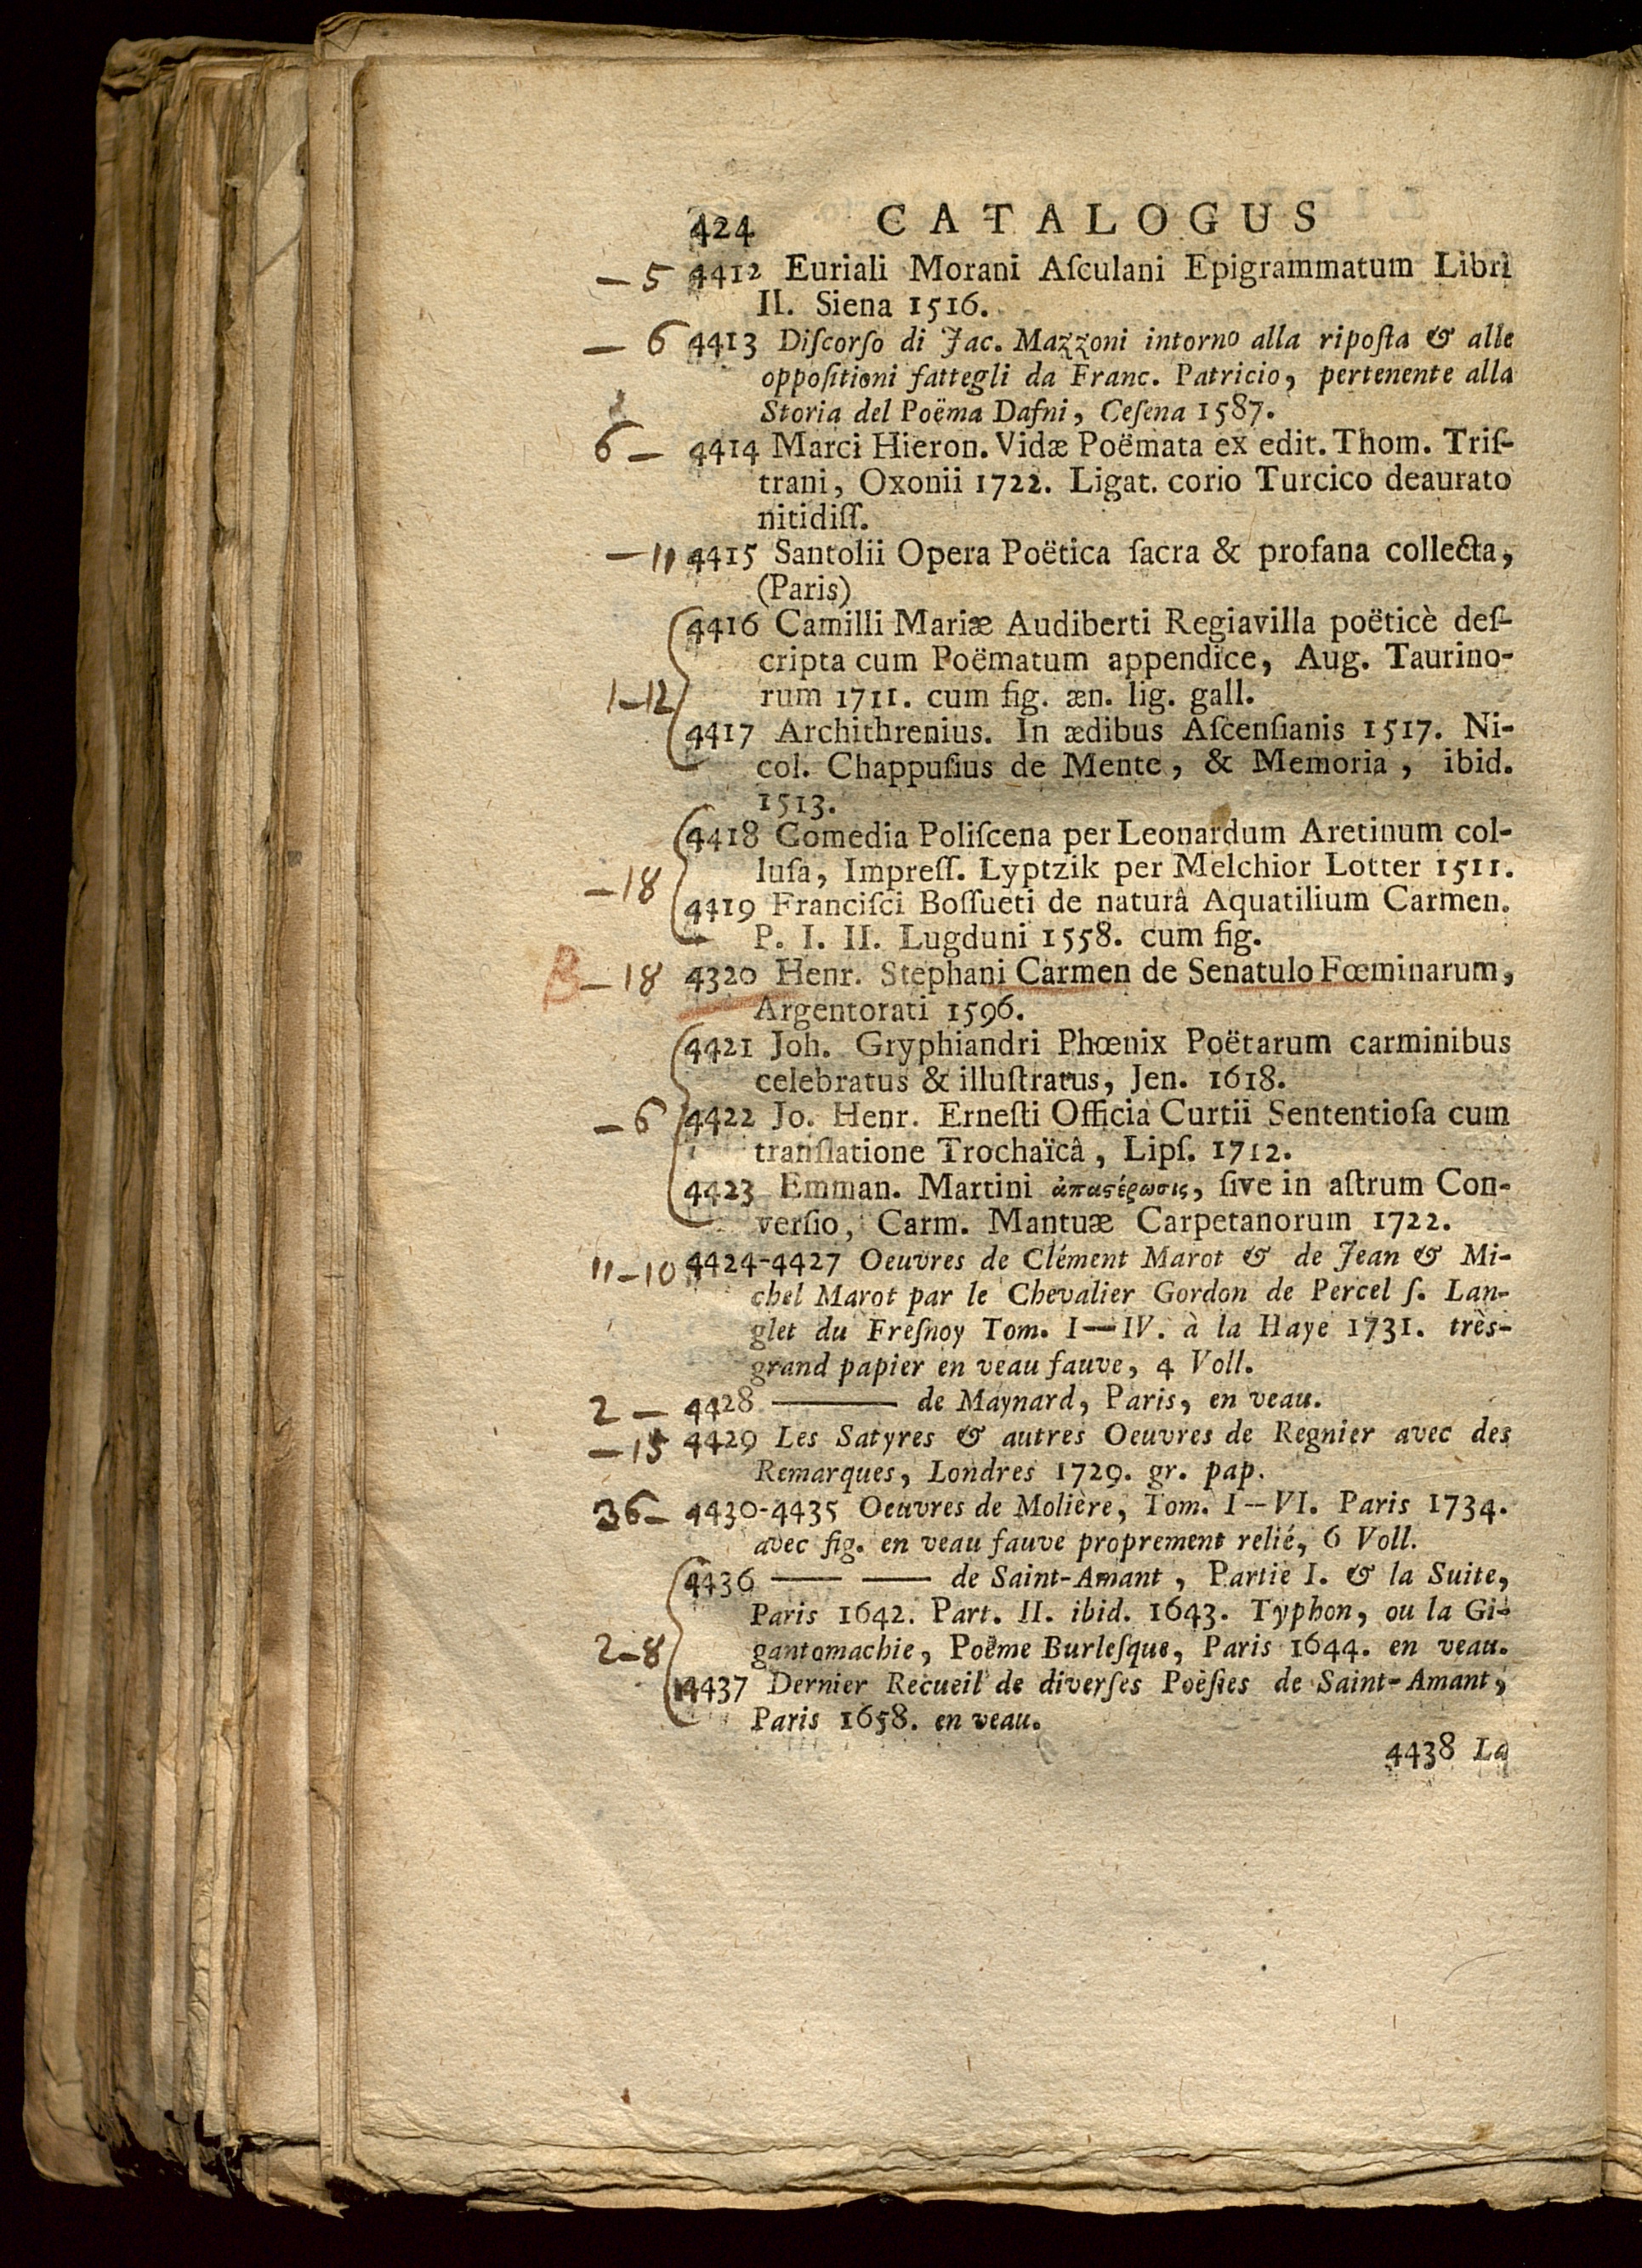 424 CATALOGUS
— 5 4412 Euriali Morani Aſculani Epigrammatum Libri
II. Siena 1516.
— 6 4413 Diſcorſo di Jac. Mazzoni intorno alla ripoſta & alle
oppoſitioni fattegli da Franc. Patricio, pertenente alla
Storia del Poëma Dafni, Ceſena 1587.
6 — 4414 Marci Hieron. Vidæ Poëmata ex edit. Thom. Triſ-
trani, Oxonii 1722. Ligat. corio Turcico deaurato
nitidiſſ.
— 11 4415 Santolii Opera Poëtica ſacra & profana collecta,
(Paris)
4416 Camilli Mariæ Audiberti Regiavilla poëticè deſ-
cripta cum Poëmatum appendice, Aug. Taurino-
1—12 rum 1711. cum fig. æn. lig. gall.
4417 Archithrenius. In ædibus Aſcenſianis 1517. Ni-
col. Chappuſius de Mente, & Memoria, ibid.
1513.
4418 Comedia Poliſcena per Leonardum Aretinum col-
luſa, Impreſſ. Lyptzik per Melchior Lotter 1511.
— 18 4419 Franciſci Boſſueti de naturâ Aquatilium Carmen.
P. I. II. Lugduni 1558. cum fig.
B — 18 4320 Henr. Stephani Carmen de Senatulo Fœminarum,
Argentorati 1596.
4421 Joh. Gryphiandri Phœnix Poëtarum carminibus
celebratus & illuſtratus, Jen. 1618.
— 6 4422 Jo. Henr. Erneſti Officia Curtii Sententioſa cum
tranſlatione Trochaïcâ, Lipſ. 1712.
4423 Emman. Martini ἀπαϛέρωσις, ſive in aſtrum Con-
verſio, Carm. Mantuæ Carpetanorum 1722.
11—10 4424-4427 Oeuvres de Clément Marot & de Jean & Mi-
chel Marot par le Chevalier Gordon de Percel ſ. Lan-
glet du Freſnoy Tom. I—IV. à la Haye 1731. très-
grand papier en veau fauve, 4 Voll.
2 — 4428 ——— de Maynard, Paris, en veau.
— 15 4429 Les Satyres & autres Oeuvres de Regnier avec des
Remarques, Londres 1729. gr. pap.
36 — 4430-4435 Oeuvres de Molière, Tom. I—VI. Paris 1734.
avec fig. en veau fauve proprement relié, 6 Voll.
4436 —— —— de Saint-Amant, Partie I. & la Suite,
Paris 1642. Part. II. ibid. 1643. Typhon, ou la Gi-
2—8 gantomachie, Poëme Burleſque, Paris 1644. en veau.
4437 Dernier Recueil de diverſes Poëſies de Saint-Amant,
Paris 1658. en veau.
4438 La